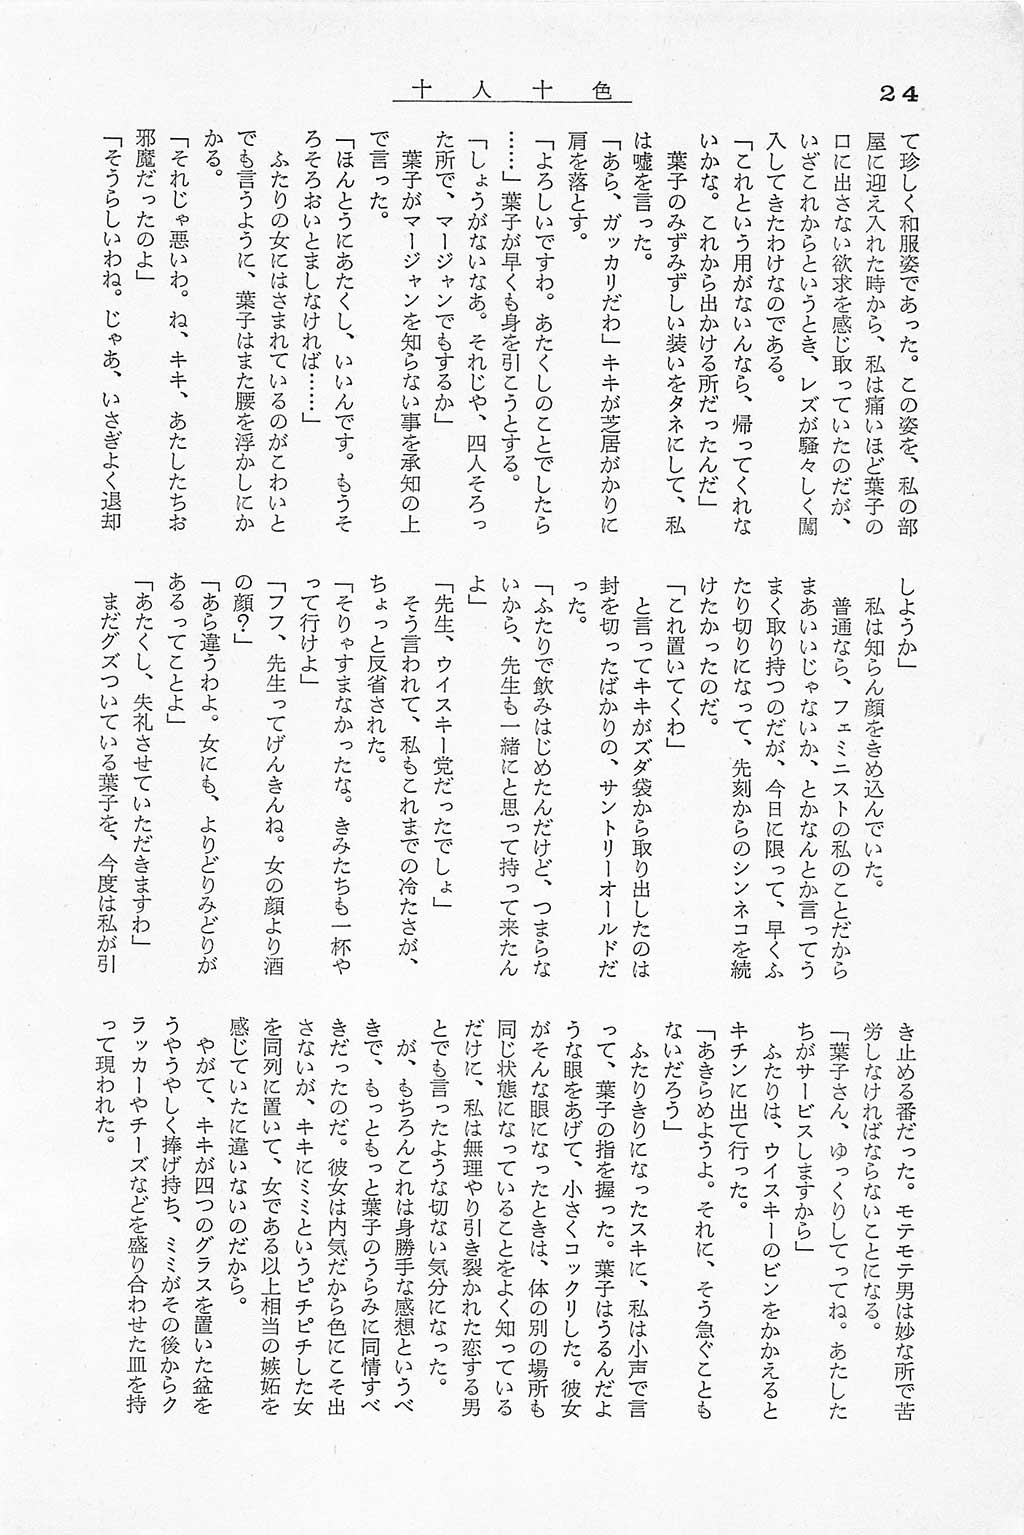 24
十人十色
て珍しく和服姿であった。この姿を、私の部
屋に迎え入れた時から、私は痛いほど葉子の
口に出さない欲求を感じ取っていたのだが、
いざこれからというとき、レズが騒々しく闖
入してきたわけなのである。
「これという用がないんなら、帰ってくれな
いかな。これから出かける所だったんだ」
葉子のみずみずしい装いをタネにして、私
は嘘を言った。
「あら、ガッカリだわ」キキが芝居がかりに
肩を落とす。
「よろしいですわ。あたくしのことでしたら
……」葉子が早くも身を引こうとする。
「しょうがないなあ。それじゃ、四人そろっ
た所で、マージャンでもするか」
葉子がマージャンを知らない事を承知の上
で言った。
「ほんとうにあたくし、いいんです。もうそ
ろそろおいとましなければ……」
ふたりの女にはさまれているのがこわいと
でも言うように、葉子はまた腰を浮かしにか
かる。
「それじゃ悪いわ。ね、キキ、あたしたちお
邪魔だったのよ」
「そうらしいわね。じゃあ、いさぎよく退却
しようか」
私は知らん顔をきめ込んでいた。
普通なら、フェミニストの私のことだから
まあいいじゃないか、とかなんとか言ってう
まく取り持つのだが、今日に限って、早くふ
たり切りになって、先刻からのシンネコを続
けたかったのだ。
「これ置いてくわ」
と言ってキキがズダ袋から取り出したのは
封を切ったばかりの、サントリーオールドだ
った。
「ふたりで飲みはじめたんだけど、つまらな
いから、先生も一緒にと思って持って来たん
よ」
「先生、ウイスキー党だったでしょ」
そう言われて、私もこれまでの冷たさが、
ちょっと反省された。
「そりゃすまなかったな。きみたちも一杯や
って行けよ」
「フフ、先生ってげんきんね。女の顔より酒
の顔？」
「あら違うわよ。女にも、よりどりみどりが
あるってことよ」
「あたくし、失礼させていただきますわ」
まだグズついている葉子を、今度は私が引
き止める番だった。モテモテ男は妙な所で苦
労しなければならないことになる。
「葉子さん、ゆっくりしてってね。あたした
ちがサービスしますから」
ふたりは、ウイスキーのビンをかかえると
キチンに出て行った。
「あきらめようよ。それに、そう急ぐことも
ないだろう」
ふたりきりになったスキに、私は小声で言
って、葉子の指を握った。葉子はうるんだよ
うな眼をあげて、小さくコックリした。彼女
がそんな眼になったときは、体の別の場所も
同じ状態になっていることをよく知っている
だけに、私は無理やり引き裂かれた恋する男
とでも言ったような切ない気分になった。
が、もちろんこれは身勝手な感想というべ
きで、もっともっと葉子のうらみに同情すべ
きだったのだ。彼女は内気だから色にこそ出
さないが、キキにミミというピチピチした女
を同列に置いて、女である以上相当の嫉妬を
感じていたに違いないのだから。
やがて、キキが四つのグラスを置いた盆を
うやうやしく捧げ持ち、ミミがその後からク
ラッカーやチーズなどを盛り合わせた皿を持
って現われた。